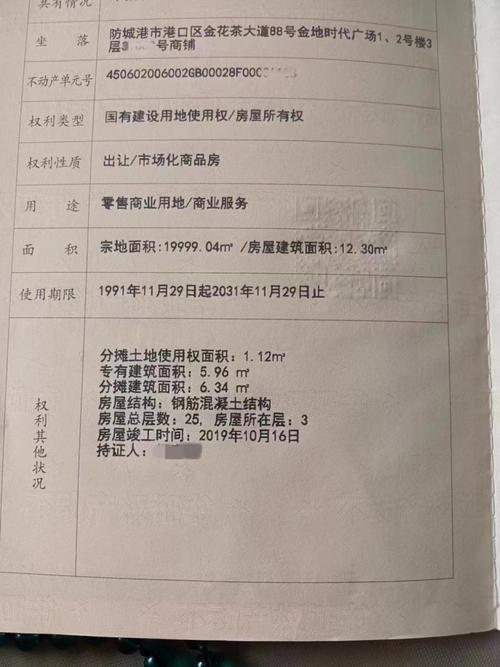 共有情况
坐落 防城港市港口区金花茶大道88号金地时代广场1、2号楼3
层3号商铺
不动产单元号 450602006002GB00028F000
权利类型 国有建设用地使用权/房屋所有权
权利性质 出让/市场化商品房
用途 零售商业用地/商业服务
面积 宗地面积:19999.04㎡ /房屋建筑面积:12.30㎡
使用期限 1991年11月29日起2031年11月29日止
权利其他状况
分摊土地使用权面积: 1.12㎡
专有建筑面积: 5.96 ㎡
分摊建筑面积: 6.34 ㎡
房屋结构: 钢筋混凝土结构
房屋总层数: 25, 房屋所在层: 3
房屋竣工时间: 2019年10月16日
持证人: